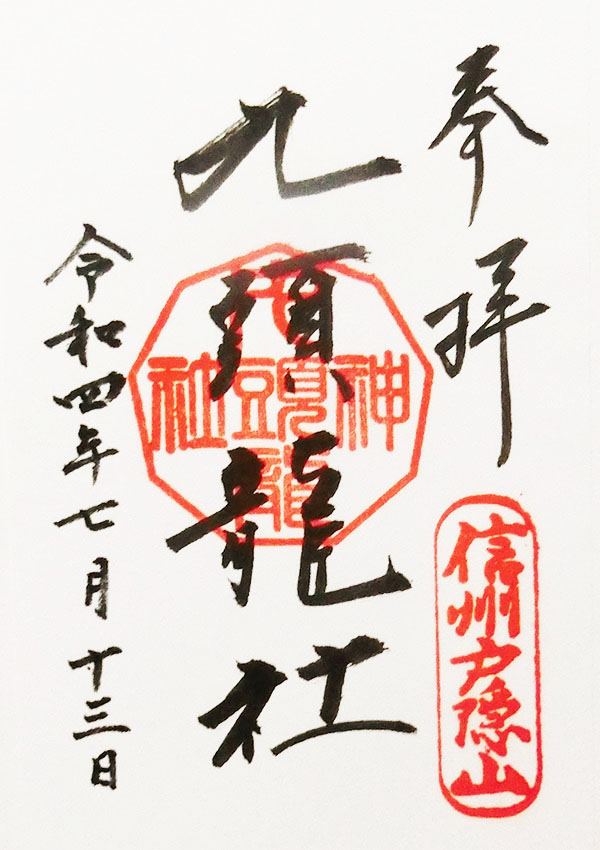 奉拝
信州戸隠山
九頭龍社
神
九頭龍
社
令和四年七月十三日